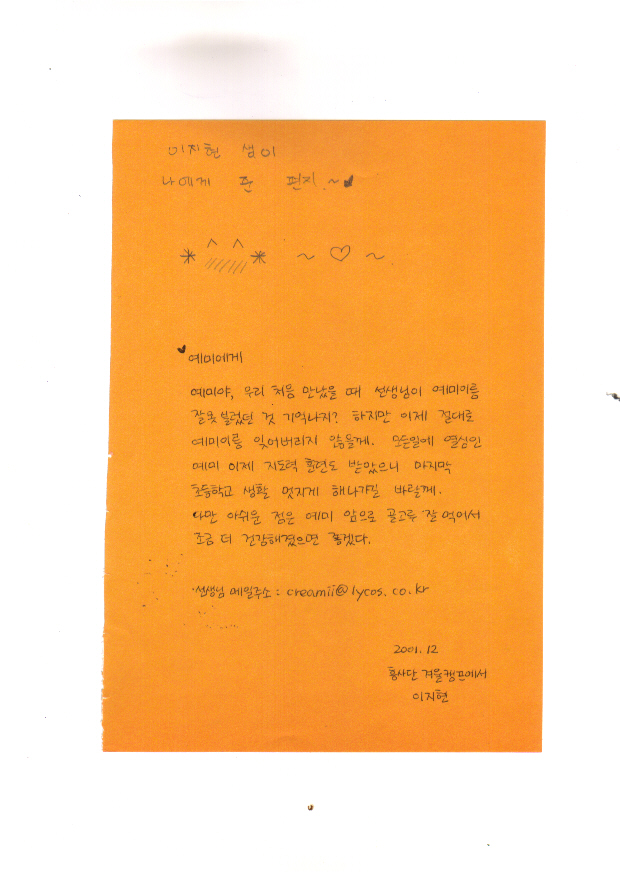 이지현 샘이
나에게 준 편지.~♥
* ^ ^ * ~ ♡ ~
♥예미에게
예미야, 우리 처음 만났을 때 선생님이 예미이름
잘못 불렀던 것 기억나지? 하지만 이제 절대로
예미이름 잊어버리지 않을께. 모든일에 열심인
예미 이제 지도력 훈련도 받았으니 마지막
초등학교 생활 멋지게 해나가길 바랄께.
다만 아쉬운 점은 예미 앞으로 골고루 잘 먹어서
조금 더 건강해졌으면 좋겠다.
선생님 메일주소 : creamii@lycos.co.kr
2001.12
흥사단 겨울캠프에서
이지현